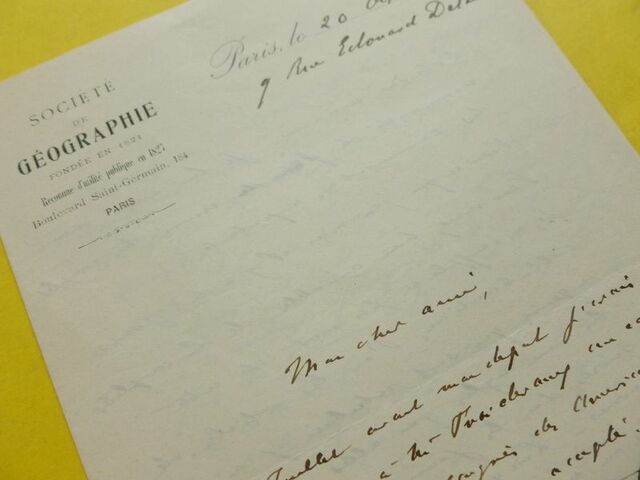 SOCIÉTÉ
DE
GÉOGRAPHIE
FONDÉE EN 1821
Reconnue d'utilité publique en 1827
Boulevard Saint-Germain, 184
PARIS
Paris, le 20
9 Rue Edouard
Mon cher ami,
Juillet avant mon départ j'avais
à Mr
Congrès des
accepté.